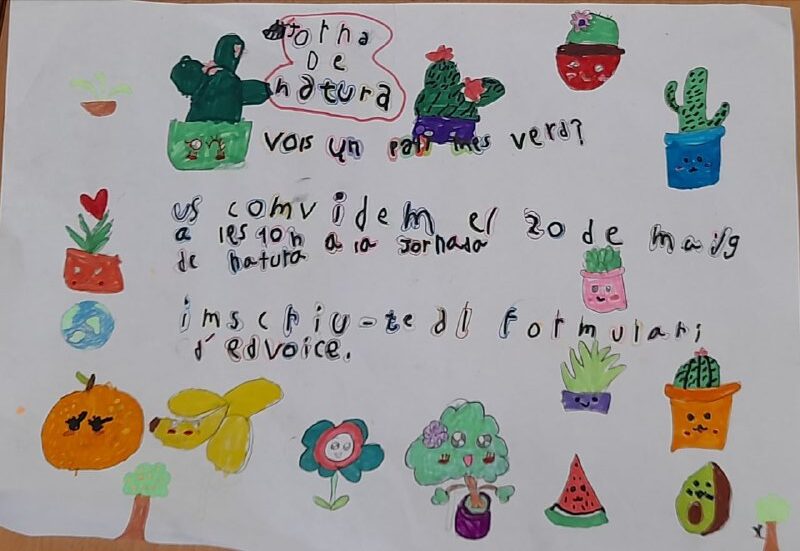 Jorna
De
natura
vols un pati mes verd?
us comvidem el 20 de maig
a les 10h a la jornada
de natura
imscriu-te al formulari
d'edvoice.